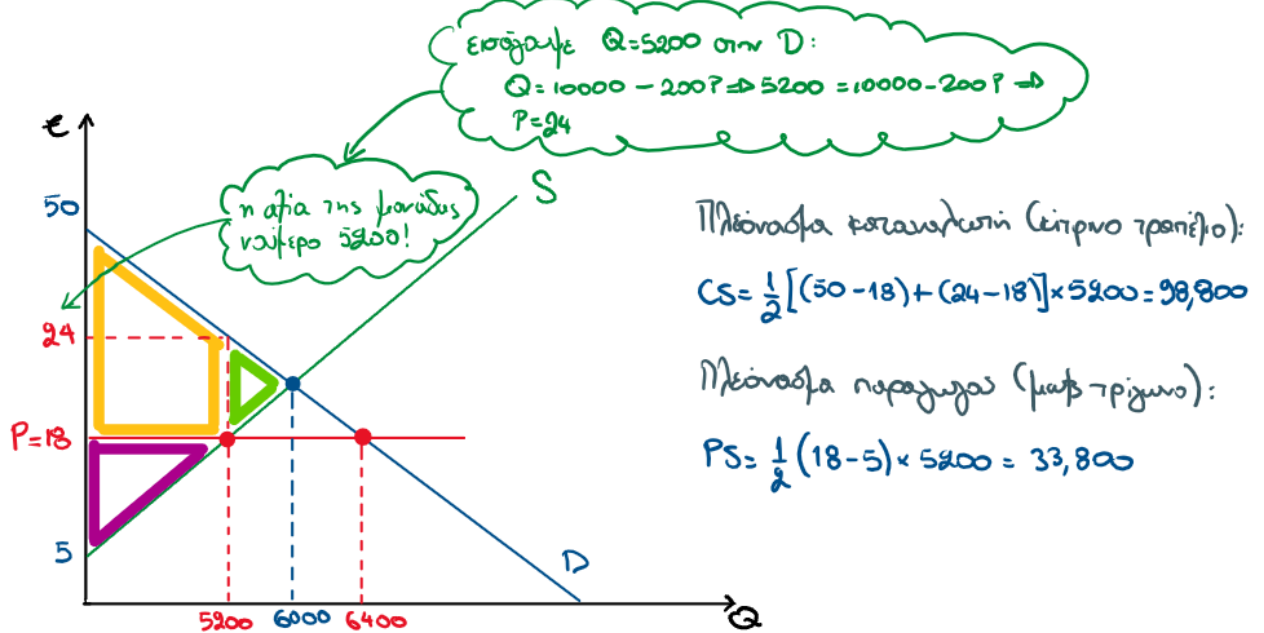 εισάγουμε Q=5200 στην D:
Q=10000-200P⇒5200=10000-200P⇒
P=24
η αξία της μονάδας
νούμερο 5200!
€
50
24
P=18
5
S
D
5200 6000 6400 Q
Πλεόνασμα καταναλωτή (κίτρινο τραπέζιο):
CS=½[(50-18)+(24-18)]×5200=98,800
Πλεόνασμα παραγωγού (μωβ τρίγωνο):
PS=½(18-5)×5200=33,800